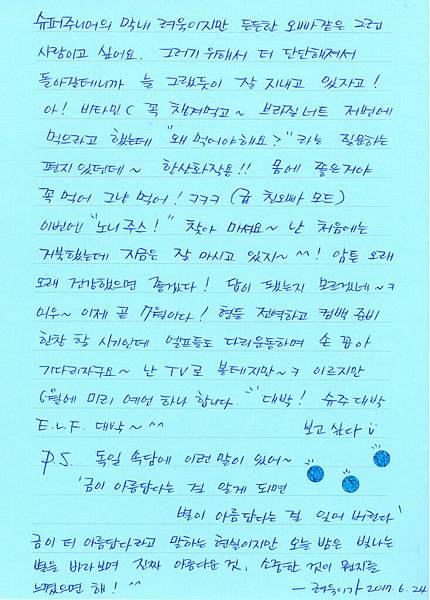 슈퍼주니어의 막내 려욱이지만 든든한 오빠같은 그런
사람이고 싶어요. 그러기 위해서 더 단단해져서
돌아갈테니까 늘 그랬듯이 잘 지내고 있자고!
아! 비타민C 꼭 챙겨먹고~ 브라질너트 저번에
먹으라고 했는데 "왜 먹어야해요?"라는 질문하는
편지 있던데~ 항산화작용!! 몸에 좋은거야
꼭 먹어 그냥 먹어! ㅋㅋㅋ (급 친오빠 모드)
이번에 "노니주스!" 찾아 마셔요~ 난 처음에는
거북했는데 지금은 잘 마시고 있지~^^! 암튼 오래
오래 건강했으면 좋겠다! 답이 됐는지 모르겠네~ㅋ
어우~ 이제 곧 7월이다! 형들 전역하고 컴백 준비
한창 할 시기인데 엘프들도 다리운동하며 손 꼽아
기다리자구요~ 난 TV로 볼테지만~ㅋ 이르지만
6월에 미리 예언 하나 합니다. "대박! 슈주대박
E.L.F. 대박~^^ 보고싶다
P.S. 독일 속담에 이런 말이 있어~
'곰이 아름답다는 걸 알게 되면
별이 아름답다는 걸 잊어 버린다'
금이 더 아름답다라고 말하는 현실이지만 오늘 밤은 빛나는
별들을 바라보며 진짜 아름다운 것, 소중한 것이 뭔지를
느꼈으면 해! ^^
— 려욱이가 2017.6.24